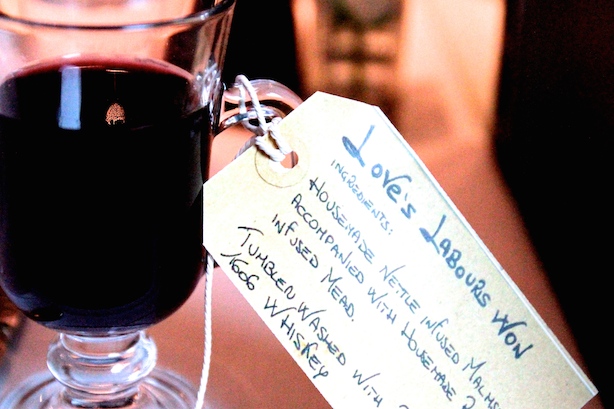 Love's Labours Won
INGREDIENTS:
HOUSEMADE NETTLE INFUSED
ACCOMPANIED WITH HOUSEMADE
INFUSED MEAD.
TUMBLER WASHED WITH
1606 WHISKEY